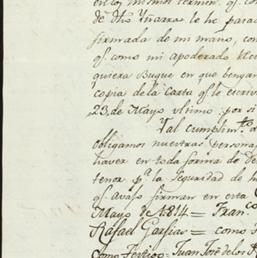 en los mismos termin.
de Dho Ynarra le he para
firmada de mi mano, con
q.e como mi apoderado
quiera Buque en que bengan
copia de la Carta q.e le escriv
23,, de Mayo ultimo: por si
Y al cumplim.to d
obligamos nuestras personas
haver en toda forma de
tenor p.a la seguridad de
q.e avajo firman en esta
Mayo 1814 = Fran.co
Rafael Garfias = como
Como Testigo: Juan José de los